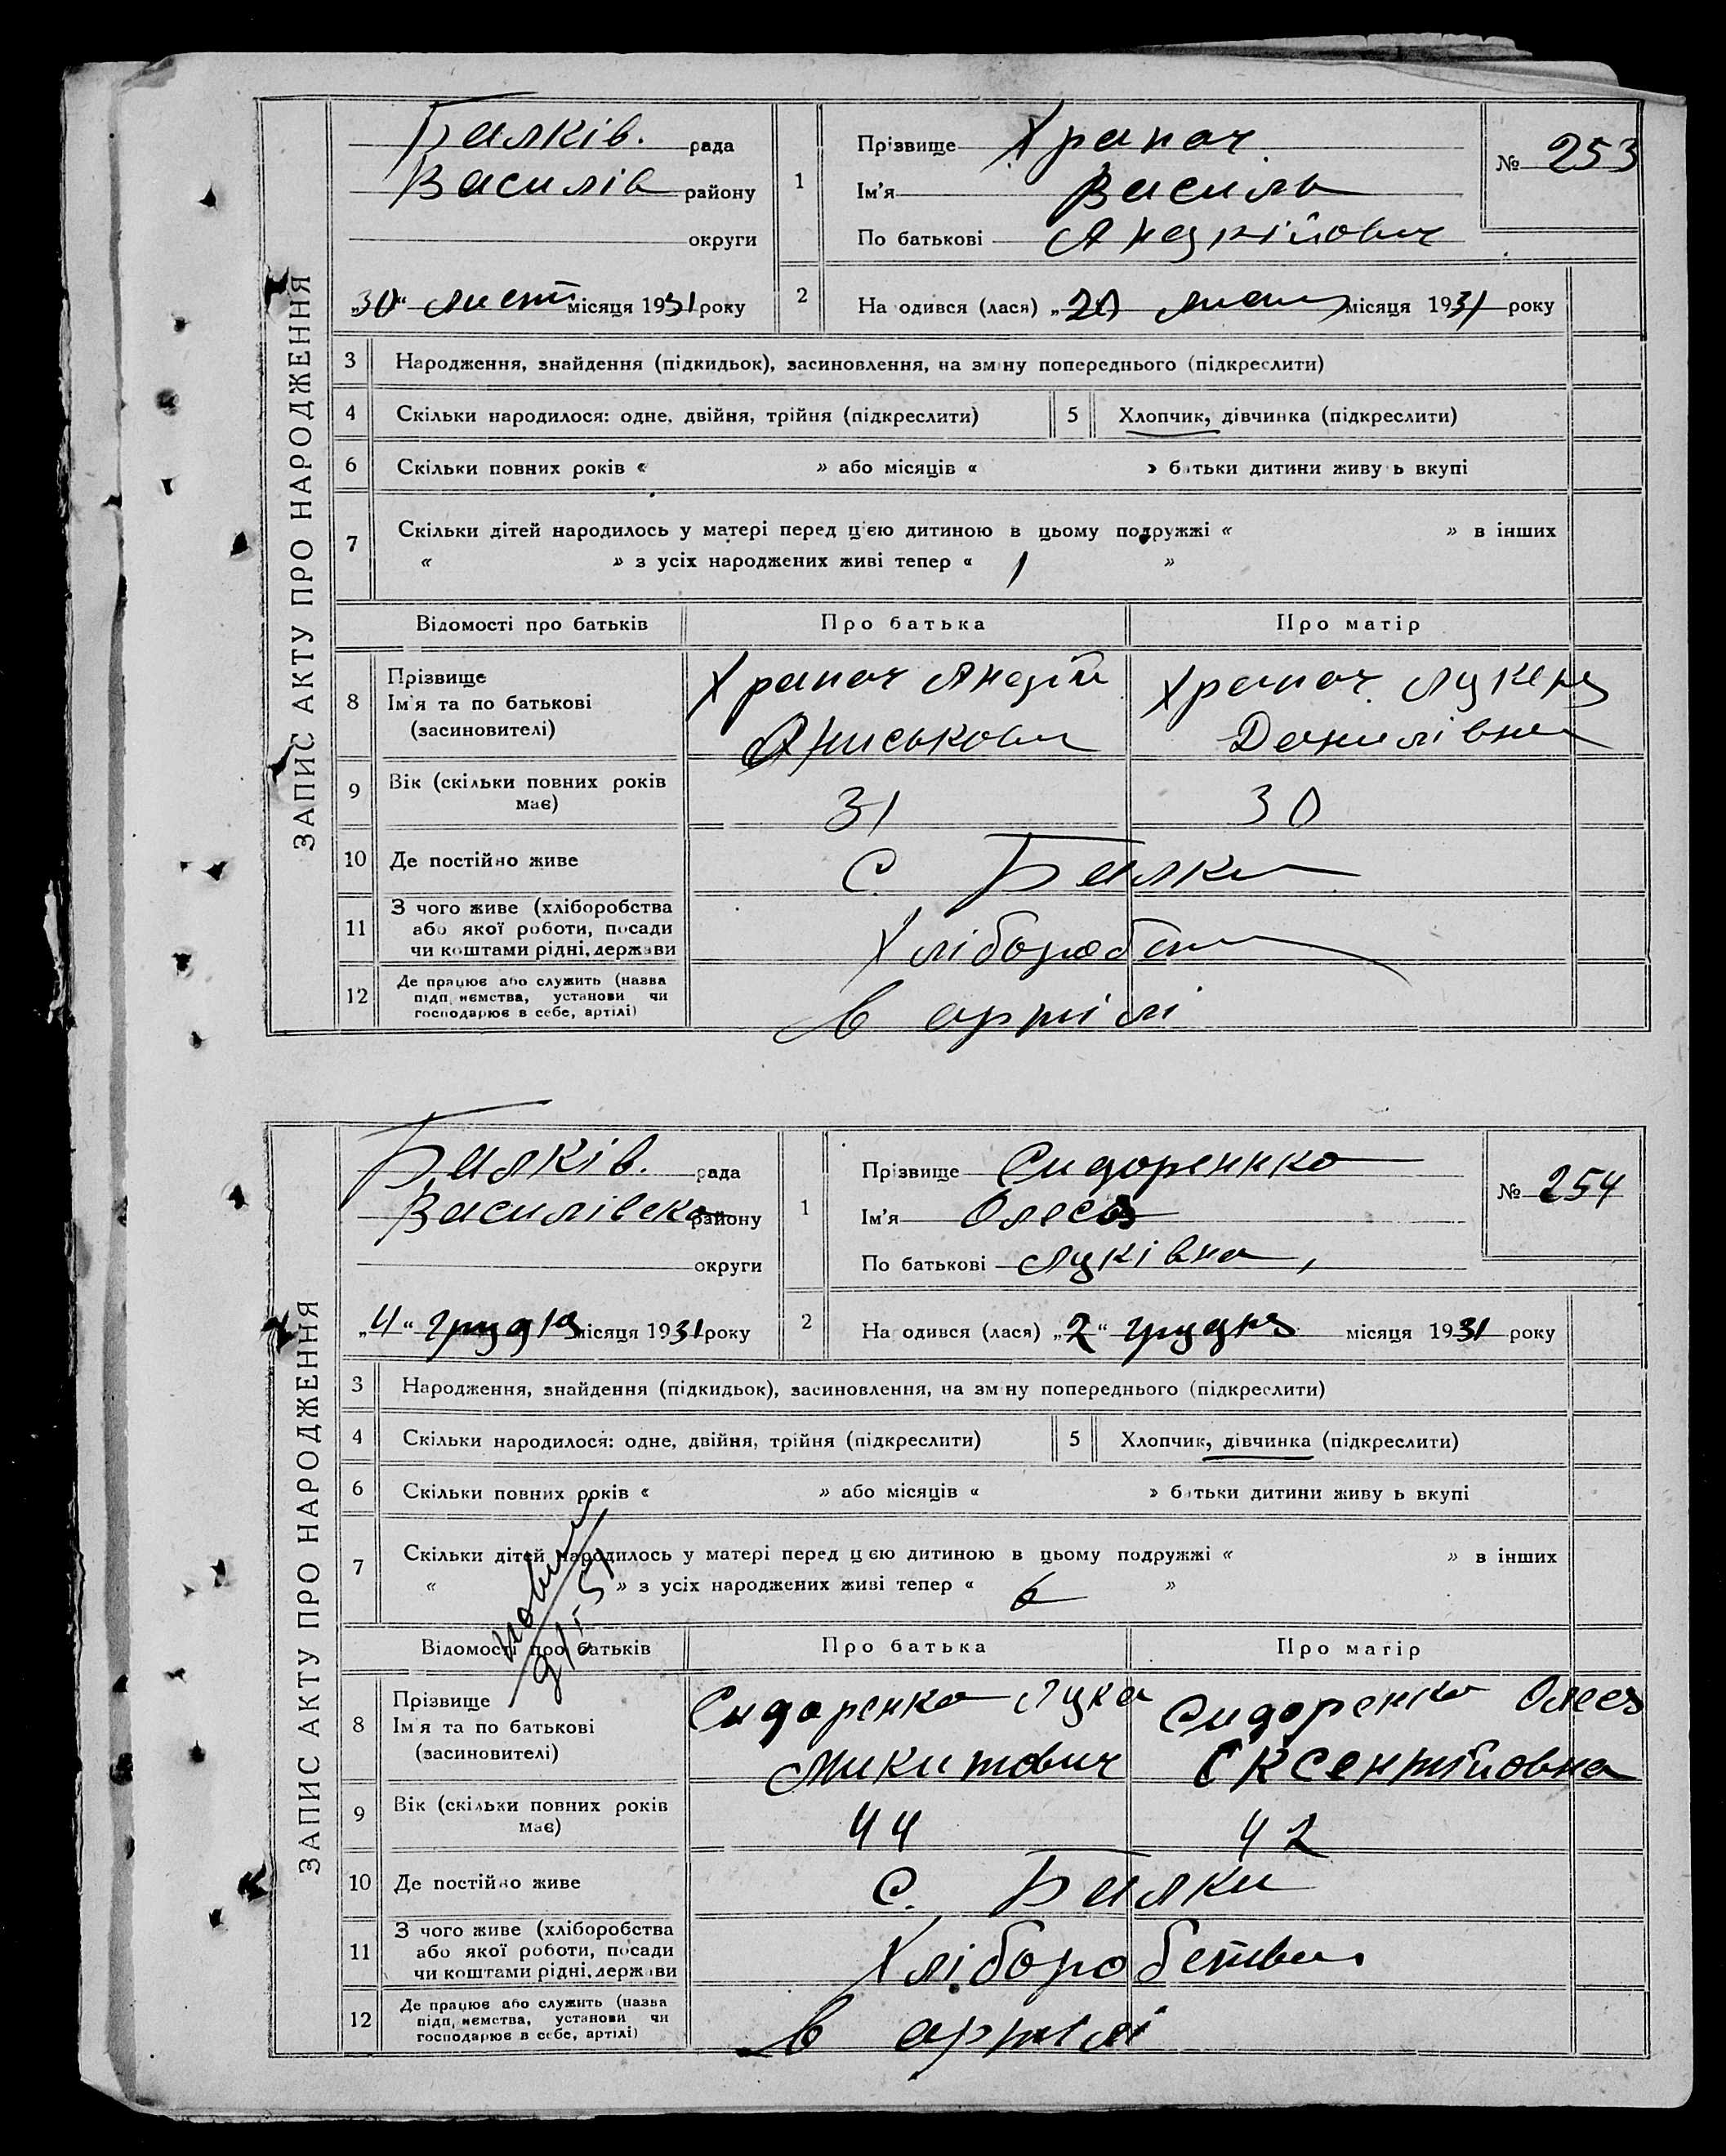 ЗАПИС АКТУ ПРО НАРОДЖЕННЯ
Балків. рада
Василів району
округи
„30“ лист місяця 1931 року
1
Прізвище Храпач
Ім'я Василь
По батькові Андрійович
№ 253
2
На одився (лася) „20 лист місяця 1931 року
3 Народження, знайдення (підкидьок), засиновлення, на зм ну попереднього (підкреслити)
4 Скільки народилося: одне, двійня, трійня (підкреслити) 5 Хлопчик, дівчинка (підкреслити)
6 Скільки повних років « » або місяців « » б тьки дитини живу ь вкупі
7 Скільки дітей народилось у матері перед цією дитиною в цьому подружжі « » в інших
« » з усіх народжених живі тепер « 1 »
Відомості про батьків Про батька Про матір
8 Прізвище
Ім'я та по батькові
(засиновителі)
Храпач Андрій
Храпач Лукеря
Данилівна
9 Вік (скільки повних років
має)
31 30
10 Де постійно живе с. Балки
11 З чого живе (хліборобства
або якої роботи, посади
чи коштами рідні, держави
Хліборобст
12 Де працює або служить (назва
підп иємства, установи чи
господарює в себе, артілі)
в артілі
ЗАПИС АКТУ ПРО НАРОДЖЕННЯ
Балків. рада
Василівско району
округи
„4“ грудня місяця 1931 року
1
Прізвище Сидореннко
Ім'я Олеся
По батькові Луківна,
№ 254
2
На одився (лася) „2“ грудня місяця 1931 року
3 Народження, знайдення (підкидьок), засиновлення, на зм ну попереднього (підкреслити)
4 Скільки народилося: одне, двійня, трійня (підкреслити) 5 Хлопчик, дівчинка (підкреслити)
6 Скільки повних років « » або місяців « » б тьки дитини живу ь вкупі
7 Скільки дітей народилось у матері перед ц єю дитиною в цьому подружжі « » в інших
« » з усіх народжених живі тепер « 6 »
Відомості про батьків Про батька Про матір
8 Прізвище
Ім'я та по батькові
(засиновителі)
Сидоренко Лука
Микитович
Сидоренко Олеся
Оксентійовна
9 Вік (скільки повних років
має)
44 42
10 Де постійно живе с. Балки
11 З чого живе (хліборобства
або якої роботи, посади
чи коштами рідні, держ ви
Хліборобством
12 Де працює або служить (назва
підп иємства, установи чи
господарює в себе, артілі)
в артілі